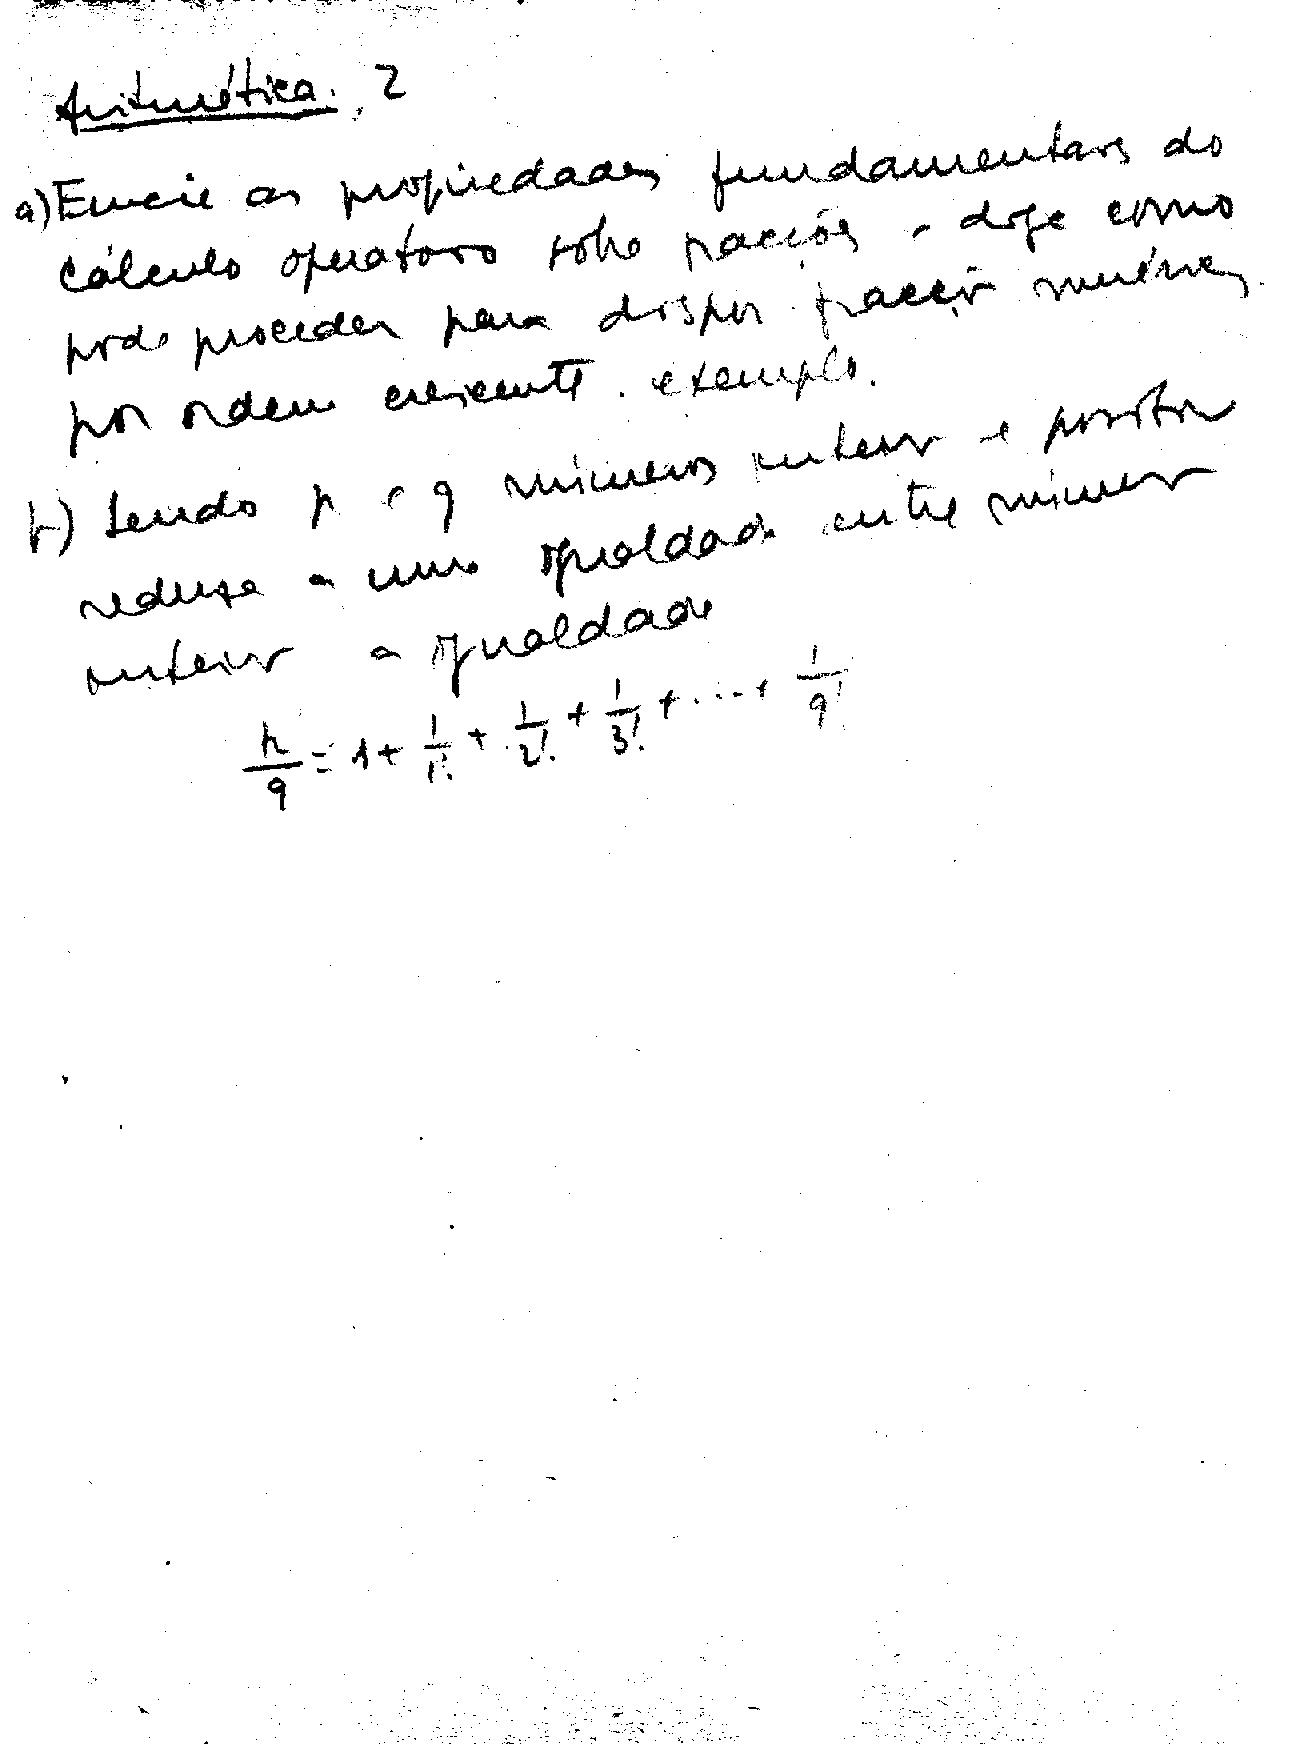 Aritmética. , 2
a) Enuncie as propriedades fundamentais do
cálculo operatório sobre fracções e diga como
pode proceder para dispor fracções numéricas
por ordem crescente. exemplo.
b) Sendo p e q números inteiros e positivos
reduza a uma igualdade entre números
inteiros a igualdade
p/q = 1 + 1/1! + 1/2! + 1/3! + .... + 1/q!